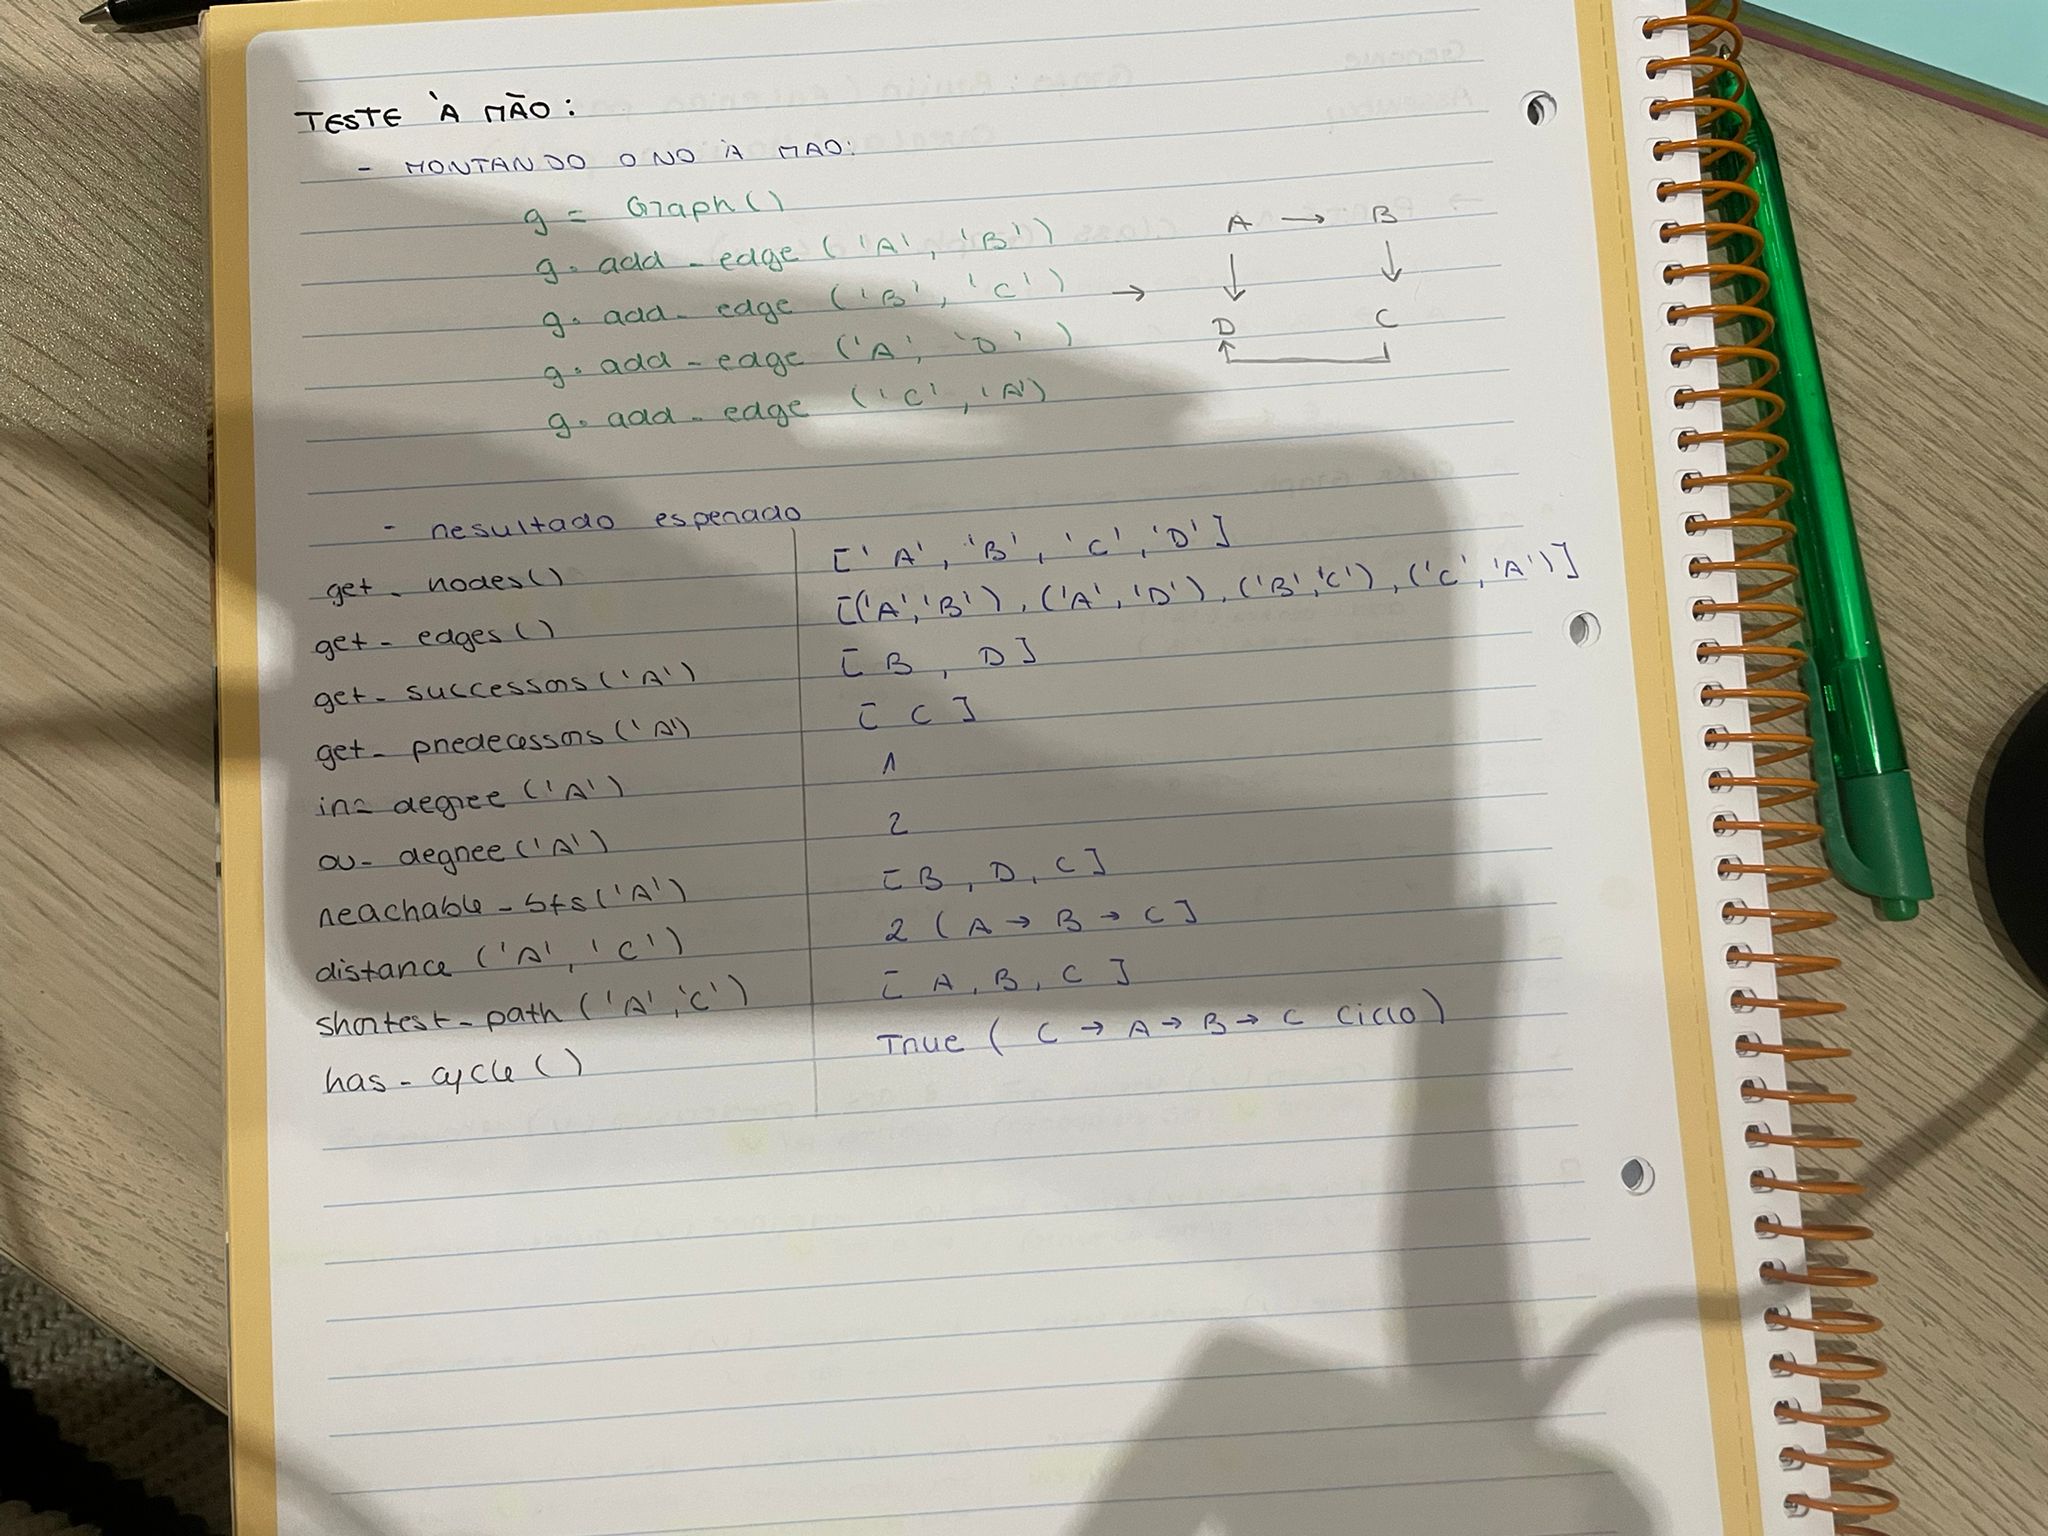 TESTE À MÃO:
- MONTANDO O NO À MAO:
g = Graph()
g. add_edge ('A', 'B')
g. add_edge ('B', 'C')
g. add_edge ('A', 'D')
g. add_edge ('C', 'A')
→
A → B
↓ ↓
D C
- resultado esperado
get_nodes() ['A', 'B', 'C', 'D']
get_edges() [('A','B'), ('A','D'), ('B','C'), ('C','A')]
get_successors('A') [B, D]
get_predecessors('A') [C]
in_degree('A') 1
ou_degree('A') 2
reachable_bfs('A') [B, D, C]
distance('A', 'C') 2 (A → B → C]
shortest_path('A','C') [A, B, C]
has_cycle() True (C → A → B → C ciclo)